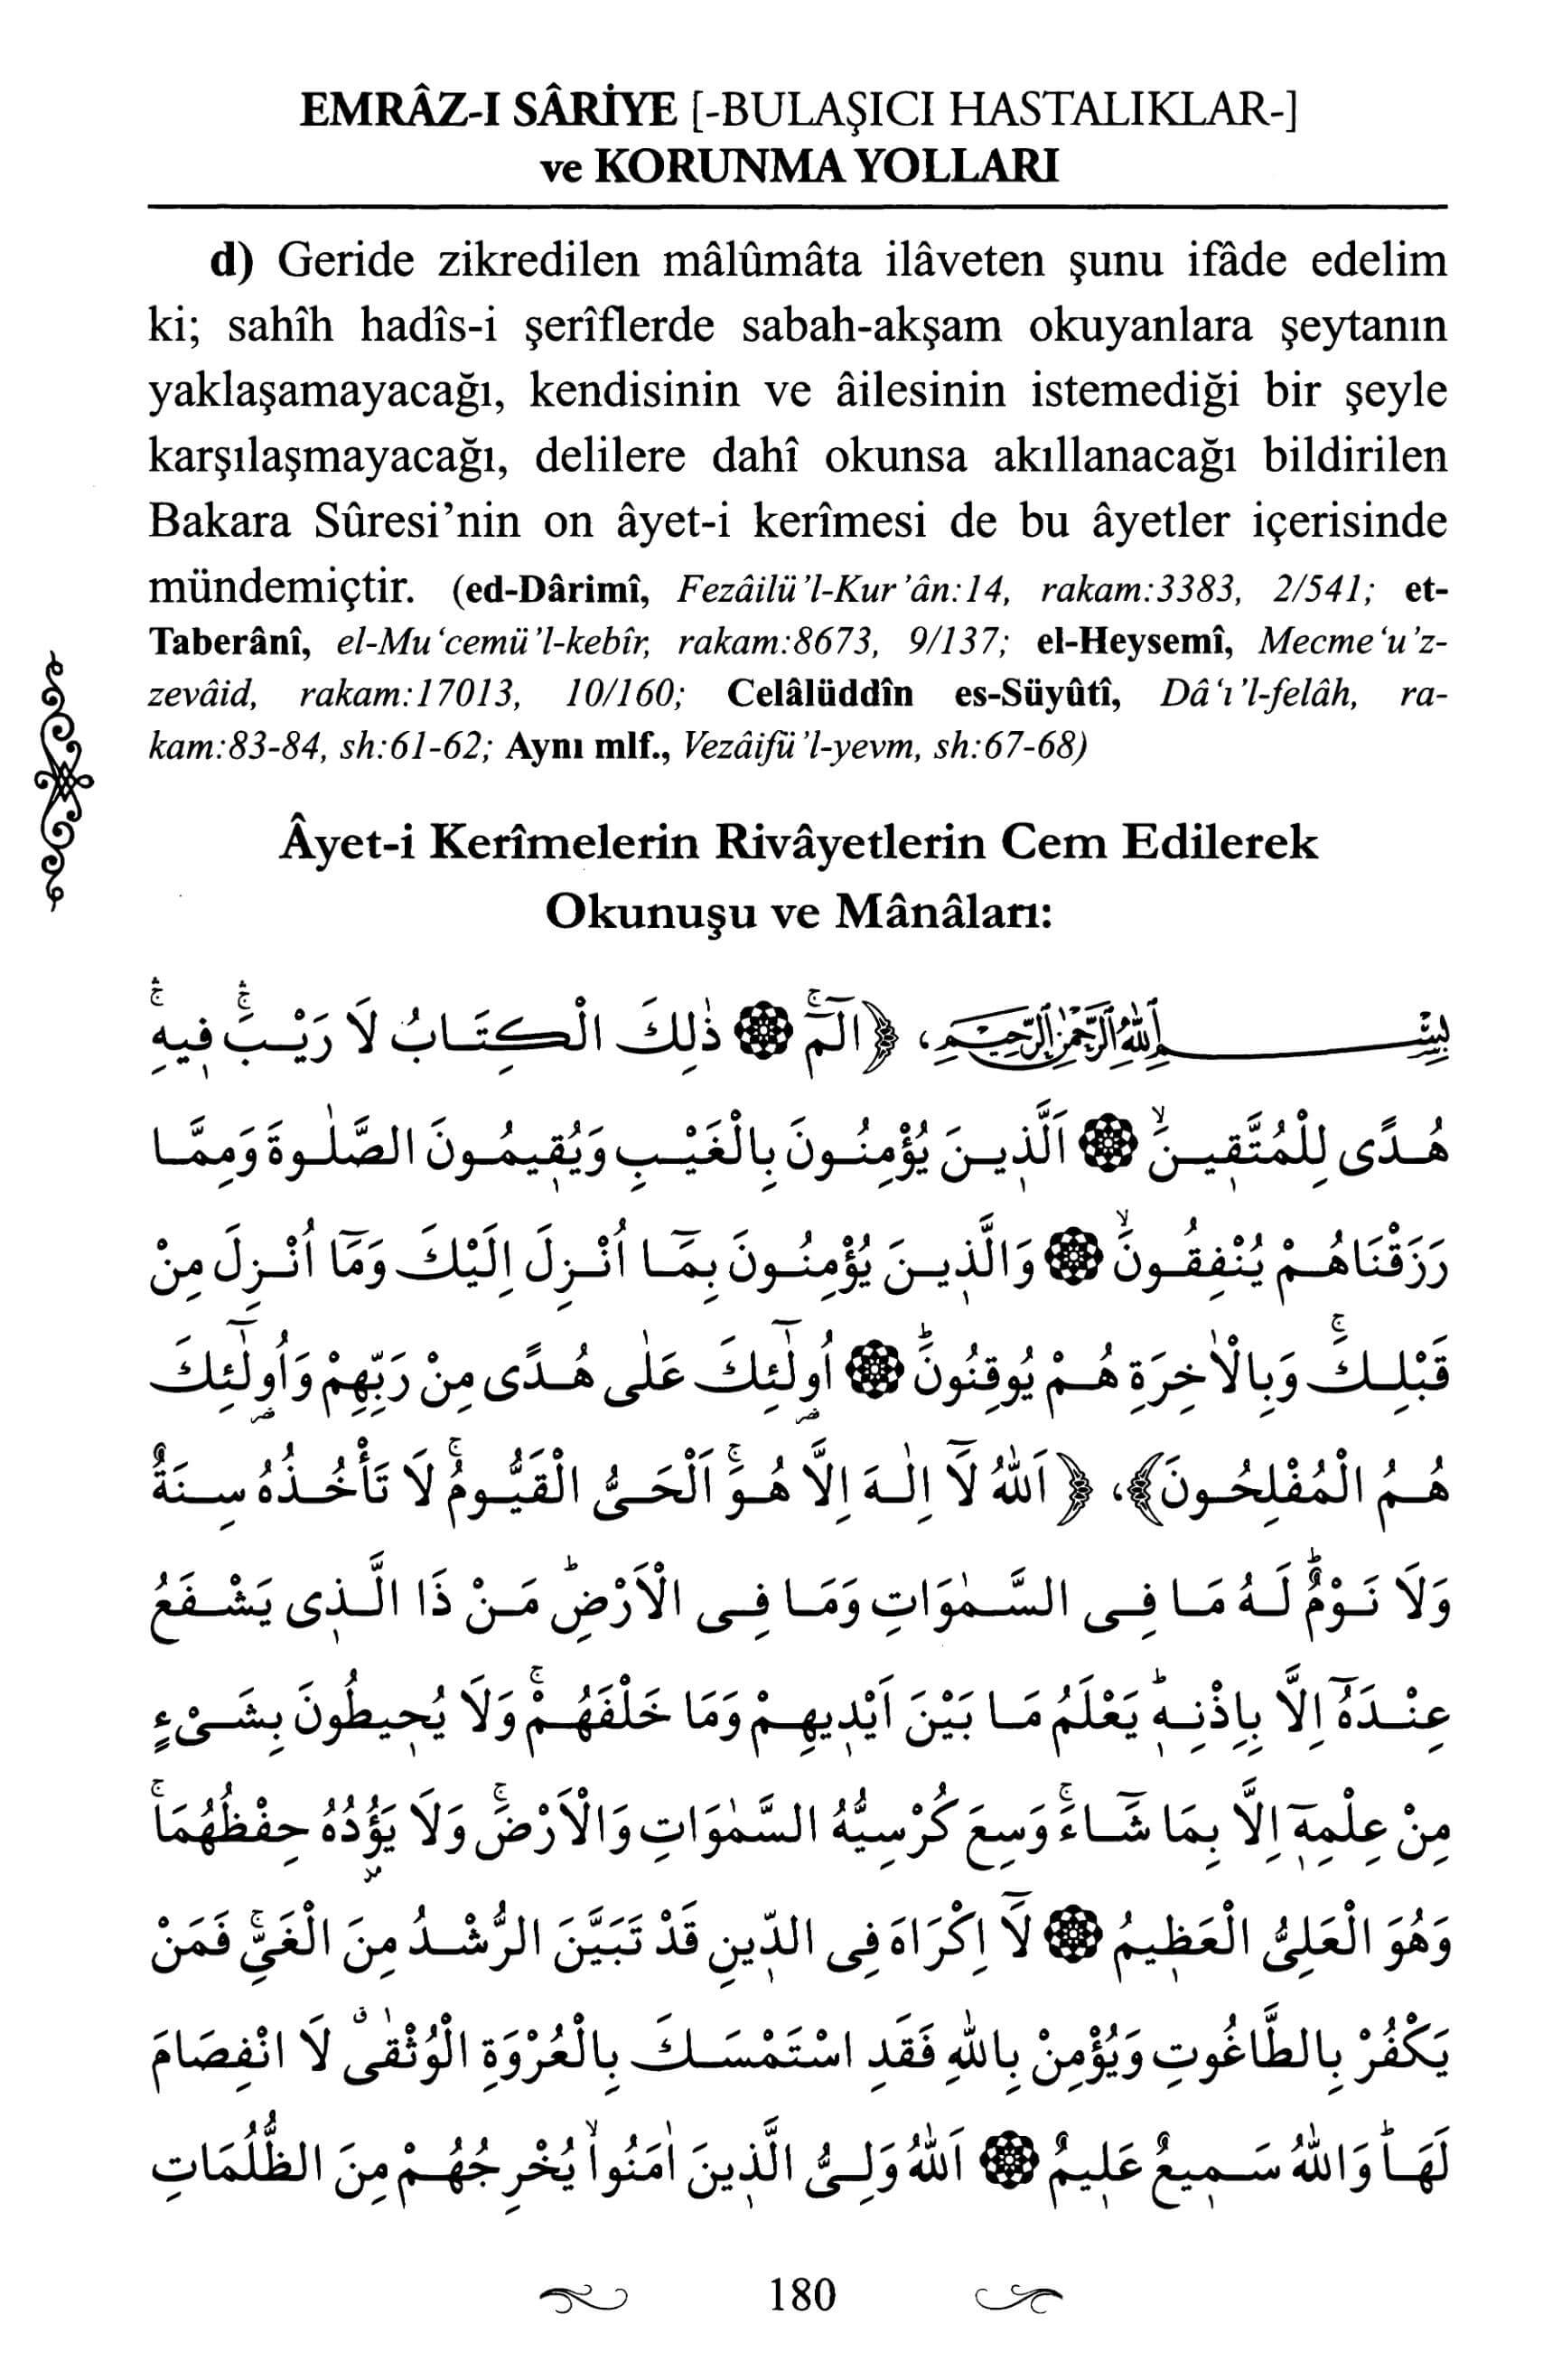 EMRÂZ-I SÂRİYE [-BULAŞICI HASTALIKLAR-]
ve KORUNMA YOLLARI
d) Geride zikredilen mâlûmâta ilâveten şunu ifâde edelim
ki; sahîh hadîs-i şerîflerde sabah-akşam okuyanlara şeytanın
yaklaşamayacağı, kendisinin ve âilesinin istemediği bir şeyle
karşılaşmayacağı, delilere dahî okunsa akıllanacağı bildirilen
Bakara Sûresi’nin on âyet-i kerîmesi de bu âyetler içerisinde
mündemiçtir. (ed-Dârimî, Fezâilü’l-Kur’ân:14, rakam:3383, 2/541; et-
Taberânî, el-Mu‘cemü’l-kebîr, rakam:8673, 9/137; el-Heysemî, Mecme‘u’z-
zevâid, rakam:17013, 10/160; Celâlüddîn es-Süyûtî, Dâ‘ı’l-felâh, ra-
kam:83-84, sh:61-62; Aynı mlf., Vezâifü’l-yevm, sh:67-68)
Âyet-i Kerîmelerin Rivâyetlerin Cem Edilerek
Okunuşu ve Mânâları:
بِسْمِ اللّٰهِ الرَّحْمٰنِ الرَّحِيمِ، ﴿الٓمٓۚ ۞ ذٰلِكَ الْكِتَابُ لَا رَيْبَۚۛ فِيهِۚۛ
هُدًى لِلْمُتَّقِينَۙ ۞ اَلَّذِينَ يُؤْمِنُونَ بِالْغَيْبِ وَيُقِيمُونَ الصَّلٰوةَ وَمِمَّا
رَزَقْنَاهُمْ يُنْفِقُونَۙ ۞ وَالَّذِينَ يُؤْمِنُونَ بِمَٓا اُنْزِلَ اِلَيْكَ وَمَٓا اُنْزِلَ مِنْ
قَبْلِكَۚ وَبِالْاٰخِرَةِ هُمْ يُوقِنُونَۜ ۞ اُو۬لٰٓئِكَ عَلٰى هُدًى مِنْ رَبِّهِمْ وَاُو۬لٰٓئِكَ
هُمُ الْمُفْلِحُونَ﴾، ﴿اَللّٰهُ لَٓا اِلٰهَ اِلَّا هُوَۚ اَلْحَىُّ الْقَيُّومُۚ لَا تَأْخُذُهُ سِنَةٌ
وَلَا نَوْمٌۜ لَهُ مَا فِى السَّمٰوَاتِ وَمَا فِى الْاَرْضِۜ مَنْ ذَا الَّذِى يَشْفَعُ
عِنْدَهُٓ اِلَّا بِاِذْنِهِۜ يَعْلَمُ مَا بَيْنَ اَيْدِيهِمْ وَمَا خَلْفَهُمْۚ وَلَا يُحِيطُونَ بِشَىْءٍ
مِنْ عِلْمِهِٓ اِلَّا بِمَا شَٓاءَۚ وَسِعَ كُرْسِيُّهُ السَّمٰوَاتِ وَالْاَرْضَۚ وَلَا يَؤُ۫دُهُ حِفْظُهُمَاۚ
وَهُوَ الْعَلِىُّ الْعَظِيمُ ۞ لَٓا اِكْرَاهَ فِى الدِّينِ قَدْ تَبَيَّنَ الرُّشْدُ مِنَ الْغَىِّۚ فَمَنْ
يَكْفُرْ بِالطَّاغُوتِ وَيُؤْمِنْ بِاللّٰهِ فَقَدِ اسْتَمْسَكَ بِالْعُرْوَةِ الْوُثْقٰىۗ لَا انْفِصَامَ
لَهَاۜ وَاللّٰهُ سَمِيعٌ عَلِيمٌ ۞ اَللّٰهُ وَلِىُّ الَّذِينَ اٰمَنُواۙ يُخْرِجُهُمْ مِنَ الظُّلُمَاتِ
180